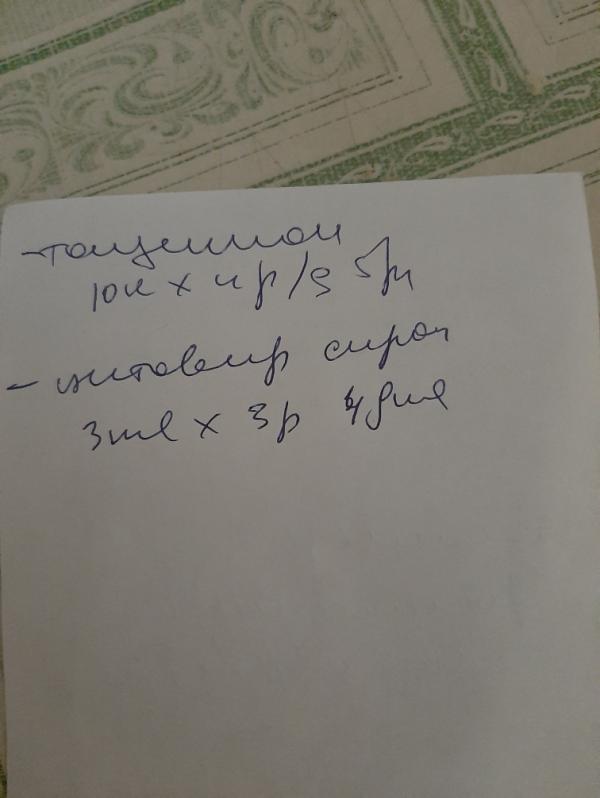 - тонзилгон
10к х 4 р/д 5 дн
- цитовир сироп
3 мл х 3р 4 дня